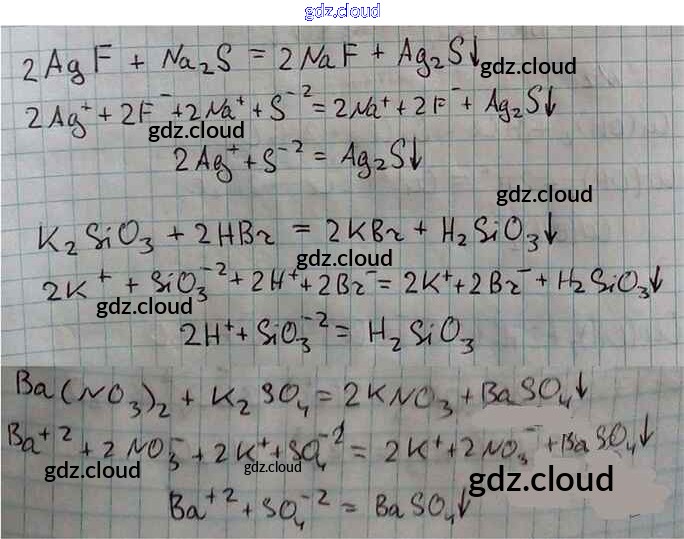 gdz.cloud
2AgF + Na₂S = 2NaF + Ag₂S↓
gdz.cloud
2Ag⁺ + 2F⁻ + 2Na⁺ + S⁻² = 2Na⁺ + 2F⁻ + Ag₂S↓
gdz.cloud
2Ag⁺ + S⁻² = Ag₂S↓
gdz.cloud
K₂SiO₃ + 2HBr = 2KBr + H₂SiO₃↓
gdz.cloud
2K⁺ + SiO₃⁻² + 2H⁺ + 2Br⁻ = 2K⁺ + 2Br⁻ + H₂SiO₃↓
gdz.cloud
2H⁺ + SiO₃⁻² = H₂SiO₃
gdz.cloud
Ba(NO₃)₂ + K₂SO₄ = 2KNO₃ + BaSO₄↓
Ba⁺² + 2NO₃⁻ + 2K⁺ + SO₄⁻² = 2K⁺ + 2NO₃⁻ + BaSO₄↓
gdz.cloud
gdz.cloud
gdz.cloud
Ba⁺² + SO₄⁻² = BaSO₄↓